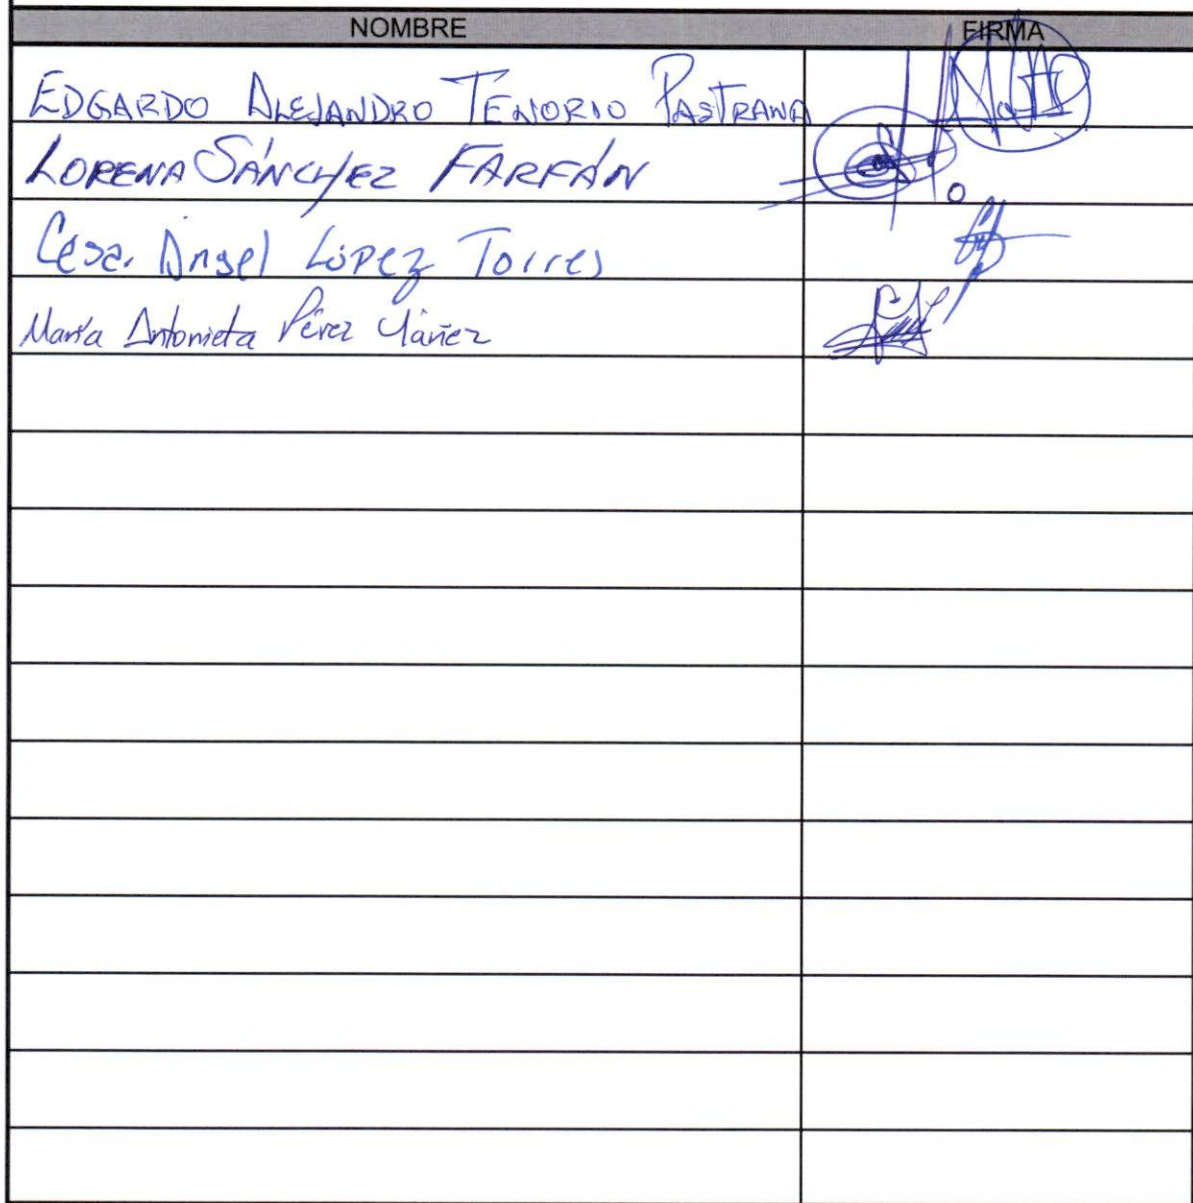 NOMBRE FIRMA
EDGARDO ALEJANDRO TENORIO PASTRANA
LORENA SÁNCHEZ FARFÁN
Cesar Angel López Torres
María Antonieta Pérez Yáñez